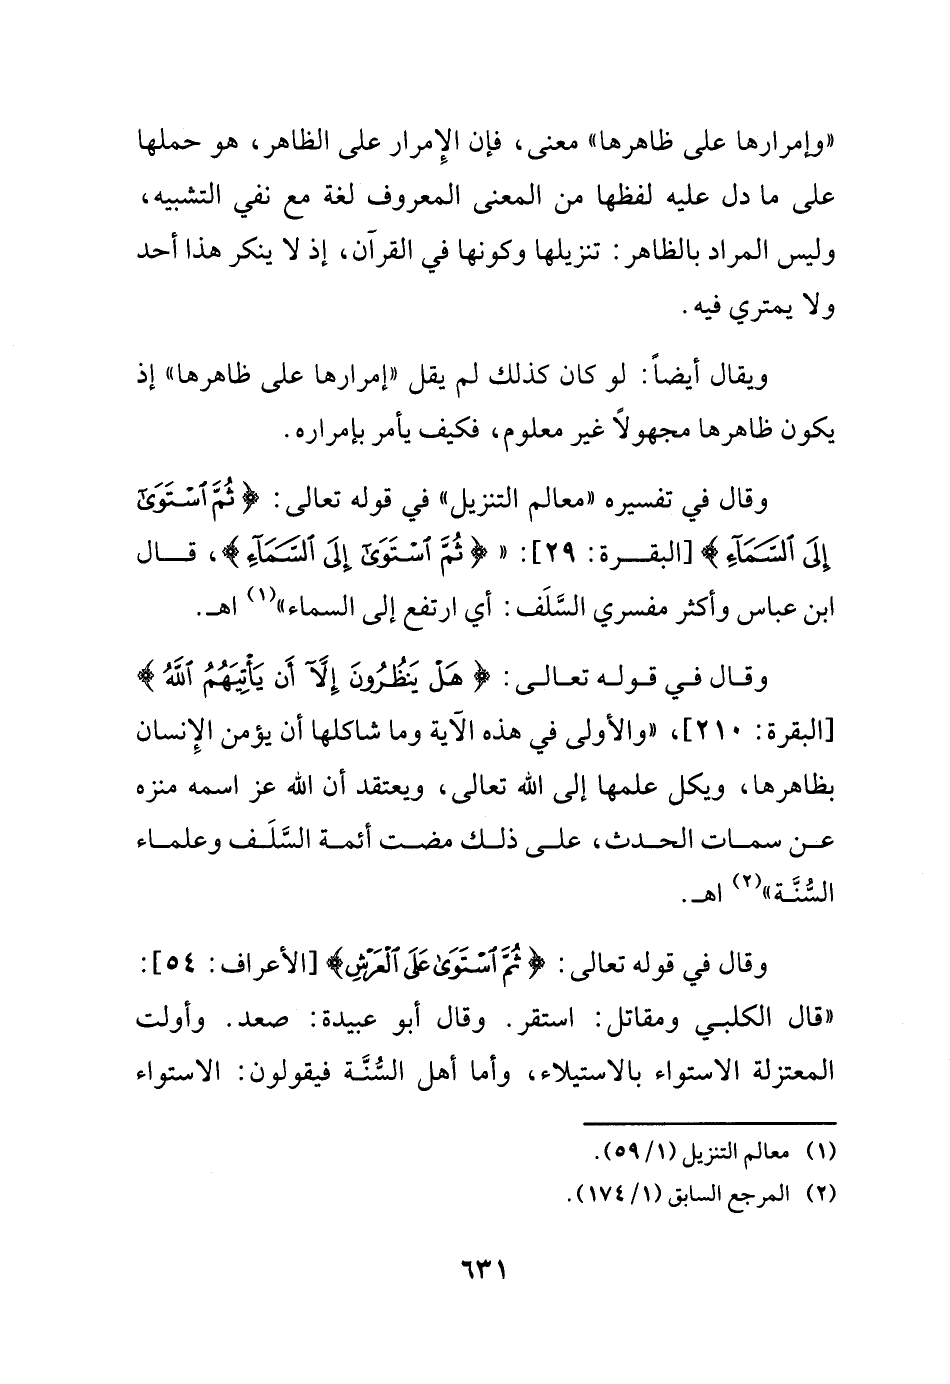 «وإمرارها على ظاهرها» معنى، فإن الإمرار على الظاهر، هو حملها
على ما دل عليه لفظها من المعنى المعروف لغة مع نفي التشبيه،
وليس المراد بالظاهر: تنزيلها وكونها في القرآن، إذ لا ينكر هذا أحد
ولا يمتري فيه.
ويقال أيضاً: لو كان كذلك لم يقل «إمرارها على ظاهرها» إذ
يكون ظاهرها مجهولاً غير معلوم، فكيف يأمر بإمراره.
وقال في تفسيره «معالم التنزيل» في قوله تعالى: ﴿ ثُمَّ ٱسْتَوَىٰٓ
إِلَى ٱلسَّمَآءِ ﴾ [البقـــرة: ٢٩]: « ﴿ ثُمَّ ٱسْتَوَىٰٓ إِلَى ٱلسَّمَآءِ ﴾، قـــال
ابن عباس وأكثر مفسري السَّلَف: أي ارتفع إلى السماء»(١) اهـ.
وقـال فـي قـولـه تعـالـى: ﴿ هَلْ يَنظُرُونَ إِلَّآ أَن يَأْتِيَهُمُ ٱللَّهُ ﴾
[البقرة: ٢١٠]، «والأولى في هذه الآية وما شاكلها أن يؤمن الإنسان
بظاهرها، ويكل علمها إلى الله تعالى، ويعتقد أن الله عز اسمه منزه
عـن سمـات الحـدث، علـى ذلـك مضـت أئمـة السَّلَـف وعلمـاء
السُّنَّـة»(٢) اهـ.
وقال في قوله تعالى: ﴿ ثُمَّ ٱسْتَوَىٰ عَلَى ٱلْعَرْشِ﴾ [الأعراف: ٥٤]:
«قال الكلبي ومقاتل: استقر. وقال أبو عبيدة: صعد. وأولت
المعتزلة الاستواء بالاستيلاء، وأما أهل السُّنَّـة فيقولون: الاستواء
(١) معالم التنزيل (٥٩/١).
(٢) المرجع السابق (١٧٤/١).
٦٣١